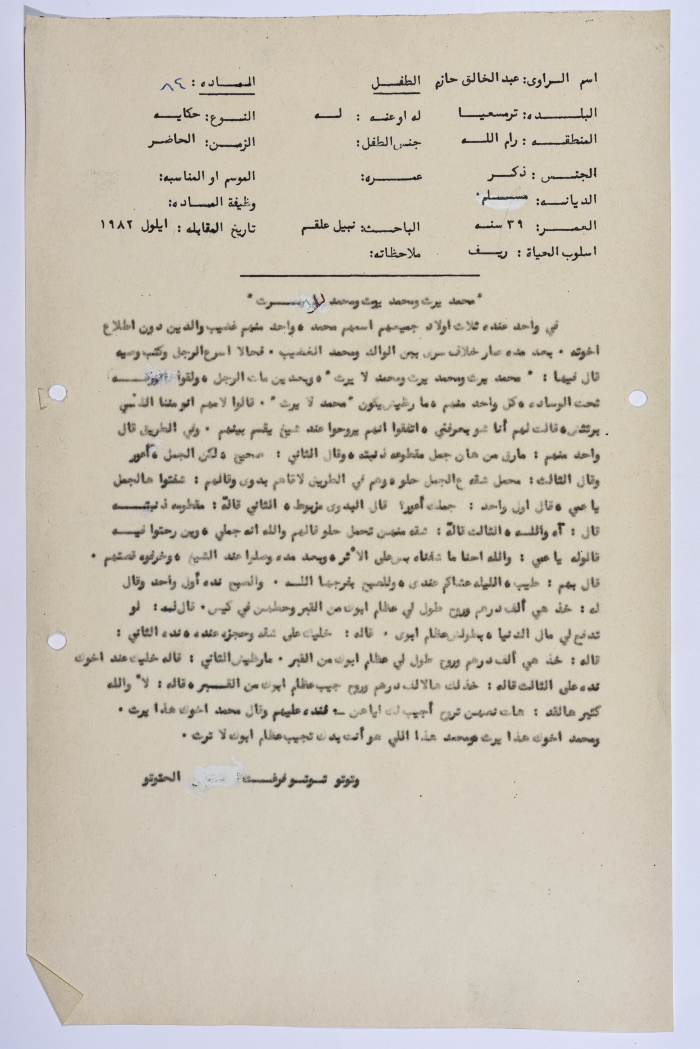 اسم الراوى: عبد الخالق حازم الطفل المــاده: ٨٤
البلــده: ترمسعيــا له او عنه: لــه النــوع: حكايــه
المنطقــه: رام اللــه جنس الطفل: الزمــن: الحاضر
الجنس: ذكر عمــره: الموسم او المناسبه:
الديانــه: مســلم وظيفة المــاده:
العمــر: ٣٩ سنــه الباحث: نبيل علقم تاريخ المقابله: ايلول ١٩٨٢
اسلوب الحياة: ريــف ملاحظاته:
"محمد يرث ومحمد يرث ومحمد لا يــرث"
في واحد عنده ثلاث اولاد جميعهم اسمهم محمد ، واحد منهم غضيب والدين دون اطلاع
اخوته ٠ بعد مده صار خلاف سرى بين الوالد ومحمد الغضيب ٠ فحالا اسرع الرجل وكتب وصيه
قال فيها: "محمد يرث ومحمد يرث ومحمد لا يرث" ، وبعدين مات الرجل ، ولقوا الورقــه
تحت الوساده ، كل واحد منهم ، ما رظيش يكون "محمد لا يرث" ٠ قالوا لامهم انو مننا اللي
يرتش ، قالت لهم أنا شو بعرفني ، اتفقوا انهم يروحوا عند شيخ يقسم بينهم ٠ وفي الطريق قال
واحد منهم: مارق من هان جمل مقطوعه ذنبته ، وقال الثاني: صحيح ، لكن الجمل ، أعور
وقال الثالث: محمل شقه ع الجمل حلو ، وهم في الطريق لاقاهم بدوى وقالهم: شفتوا هالجمل
يا عمي ، قال اول واحد: جملك أعور؟ قال البدوى مزبوط ، الثاني قاله: مقطوعه ذنبتــه
قال: آه واللــه ، الثالث قاله: شقه منهن تحمل حلو قالهم والله انه جملي ، وين رحتوا فيــه
قالوله يا عمي: والله احنا ما شفناه بس على الأثر ، وبعد مده وصلوا عند الشيخ ، وخرفوه قصتهم ٠
قال لهم: طيب ، الليله عشاكم عندى ، وللصبح بفرجها اللــه ٠ والصبح نده أول واحد وقال
له: خذ هي ألف درهم وروح طول لي عظام ابوك من القبر وحطهن في كيس ٠ قال له: لو
تدفع لي مال الدنيا ، بطولش عظام ابوى ٠ قاله: خليك على شقه وحجزه عنده ، نده الثاني:
قاله: خذ هي ألف درهم وروح طول لي عظام ابوك من القبر ٠ مارظيش الثاني: قاله خليك عند اخوك
نده على الثالث قاله: خذ لك هالالف درهم وروح جيب عظام ابوك من القــبر ، قاله: لا والله
كثير هالقد: هات نصهن تروح أجيب لك اياهن ــ فنده عليهم وقال محمد اخوك هذا يرث ٠
ومحمد اخوك هذا يرث ومحمد هذا اللي هو أنت بدك تجيب عظام ابوك لا ترث ٠
وتوتو توتــو فرغــت الحتوتو